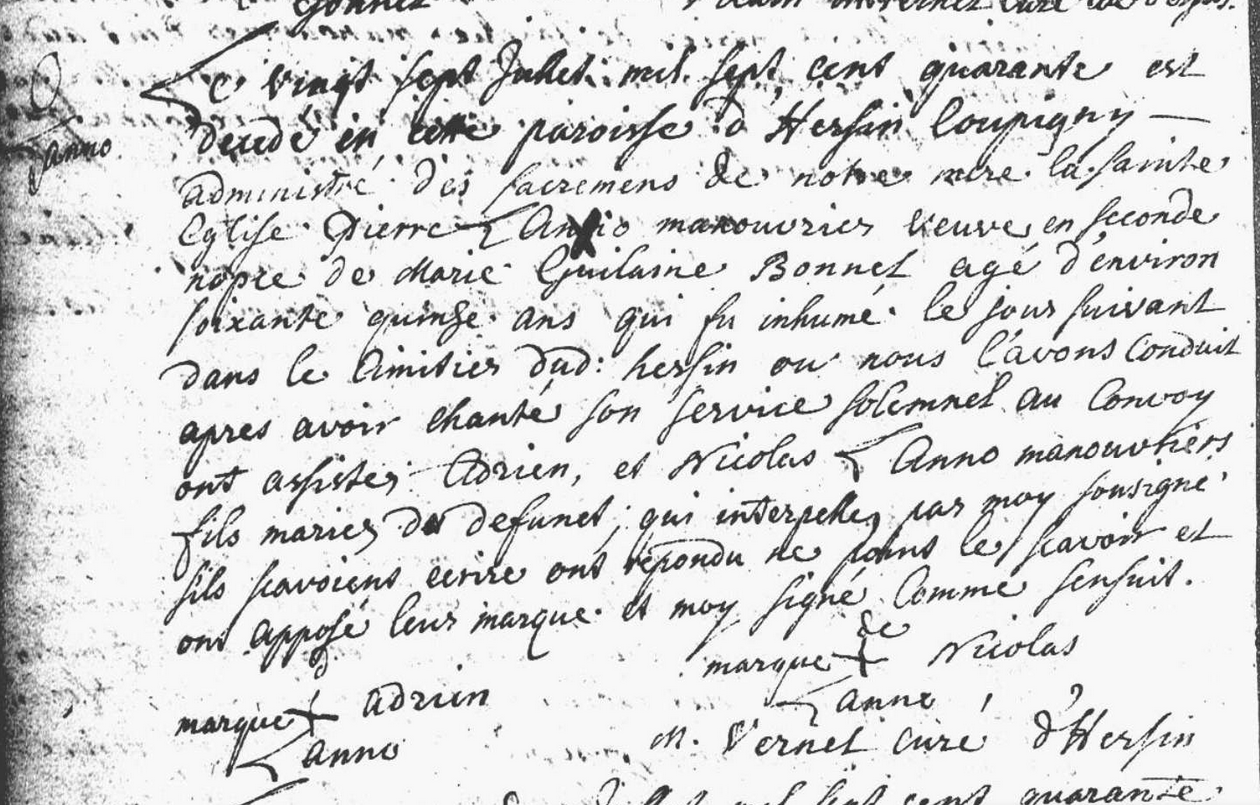 Bonnel
Vernel curé
Le vingt sept Jullet mil sept cent quarante est
decedé en cette paroisse d'Hersin Coupigny
anno
administré des sacremens de notre mere la sainte
Eglise Pierre Anno manouvrier veuve en seconde
nopce de Marie Guilaine Bonnel agé d'environ
soixante quinse ans qui fu inhumé le jour suivant
dans le cimitier dud: hersin ou nous l'avons conduit
apres avoir chanté son service solemnel au convoy
ont assistes Adrien, et Nicolas Anno manouvriers
fils maries du defunct, qui interpelles par moy sousigné
sils scavoient ecrire ont repondu ne point le scavoir et
ont apposé leur marque et moy signé comme sensuit.
marque de Nicolas
anno
marque d adrien
anno
M. Vernel curé d'Hersin
sept cent quarante